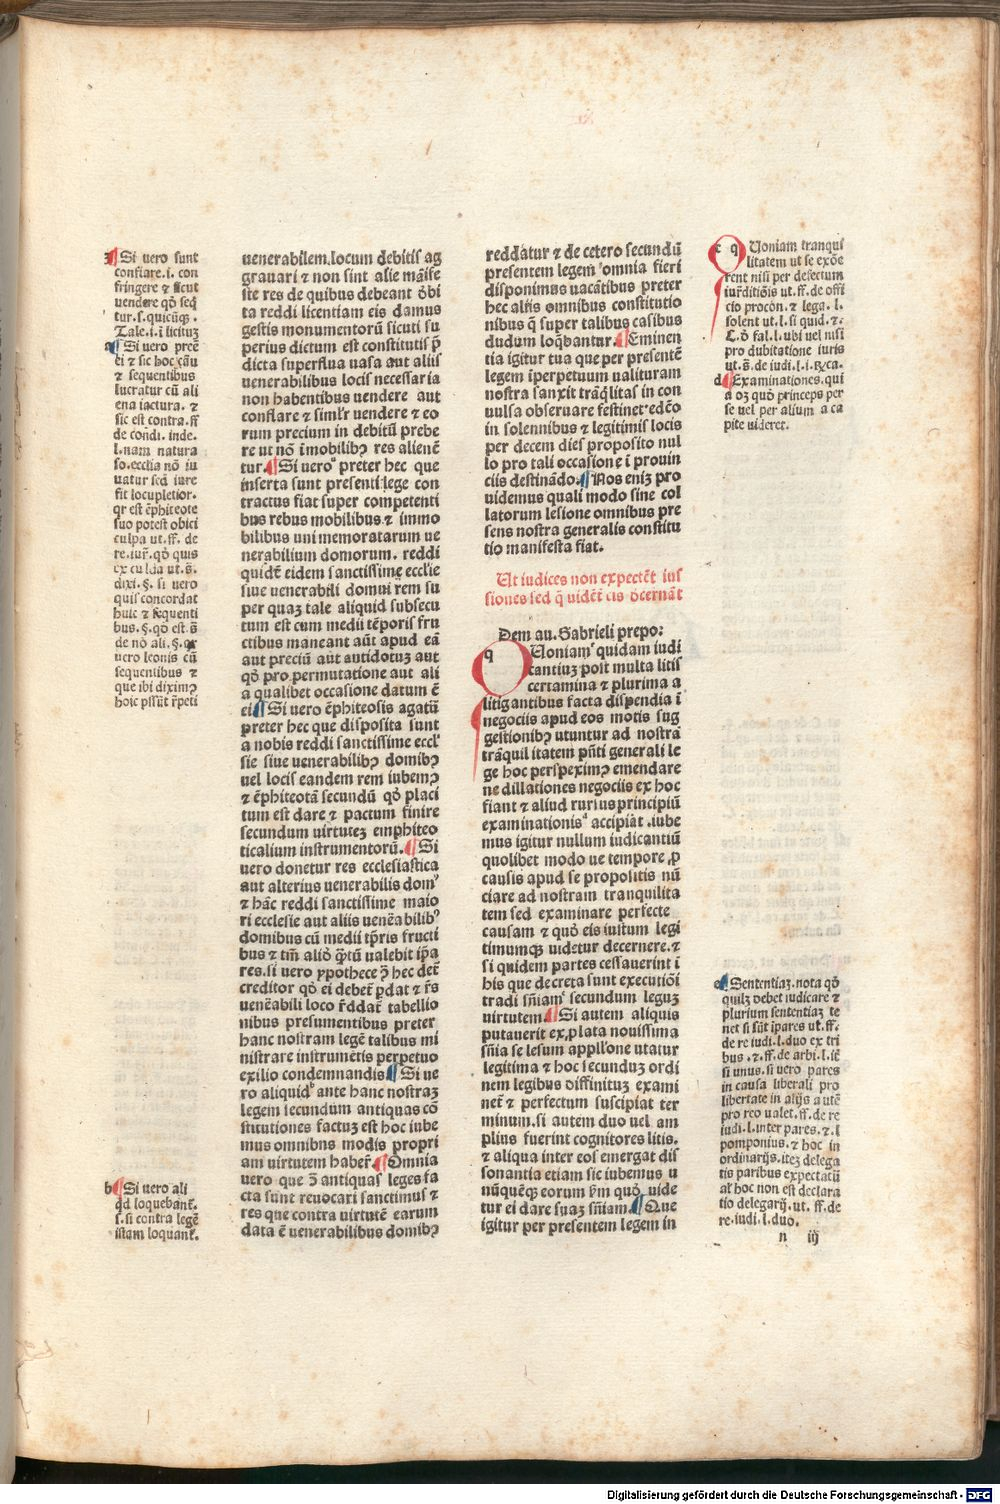 Si vero sunt
conflare.i. con
fringere ⁊ sicut
vendere qđ seq̄
tur.s.quicūq̄.
Tale.i.ī licituꝫ
Si vero preē
ei ⁊ sic hoc cāu
⁊ sequentibus
lucratur cū ali
ena iactura. ⁊
sic est contra.ff
de condi. inde.
l.nam natura
so.ecclia nō iu
uatur sed iure
fit locupletior.
qr est ēphiteote
suo potest obici
culpa ut. ff. de
re.iur̄. qđ quis
ex culpa ut.s̄.
dixi.§. si vero
quis concordat
huic ⁊ sequenti
bus.§.qđ est s̄
de nō ali.§.qr
vero leonis cū
sequentibus ⁊
que ibi diximꝰ
hoic pn̄t r̄peti
b Si vero ali
qd loquebant̄.
s.si contra legē
istam loquant̄.
venerabilem.locum debitis ag
grauari ⁊ non sint alie māife
ste res de quibus debeant ōbi
ta reddi licentiam eis damus
gestis monumentorū sicuti su
perius dictum est constitutis p̄
dicta superflua uasa aut aliis
venerabilibus locis necessaria
non habentibus vendere aut
conflare ⁊ simlr̄ vendere ⁊ eo
rum precium in debitū prebe
re ut nō īmobilibꝰ res alienē
tur. Si vero preter hec que
inserta sunt presenti lege con
tractus fiat super competenti
bus rebus mobilibus ⁊ immo
bilibus uni memoratarum ue
nerabilium domorum. reddi
quidē eidem sanctissime ecclie
siue venerabili domui rem su
per quaꝫ tale aliquid subsecu
tum est cum medii tēporis fru
ctibus maneant aūt apud eā
aut preciū aut antidotuꝫ aut
qđ pro permutatione aut ali
a qualibet occasione datum ē
ei Si vero ēphiteosis agatū
preter hec que disposita sunt
a nobis reddi sanctissime eccl'
sie siue uenerabilibꝰ domibꝰ
uel locis eandem rem iubemꝰ
⁊ ēphiteotā secundū qđ placi
tum est dare ⁊ pactum finire
secundum virtuteꝫ emphiteo
ticalium instrumentorū. Si
vero donetur res ecclesiastica
aut alterius uenerabilis domꝰ
⁊ hāc reddi sanctissime maio
ri ecclesie aut aliis uenēabilibꝰ
domibus cū medii tp̄ris fructi
bus ⁊ tm̄ aliđ q̄tū ualebit ip̄a
res.si vero ypothece ꝓ hec det̄
creditor qđ ei debet̄ ꝑdat ⁊ r̄s
uenēabili loco r̄ddat̄ tabellio
nibus presumentibus preter
hanc nostram legē talibus mi
nistrare instrumētis perpetuo
exilio condemnandis Si ve
ro aliquid ante hanc nostraꝫ
legem secundum antiquas cō
stitutiones factuꝫ est hoc iube
mus omnibus modis propri
am virtutem haber̄. Omnia
vero que ꝯ antiquas leges fa
cta sunt reuocari sanctimus ⁊
res que contra virtutē earum
data ē uenerabilibus domibꝰ
reddatur ⁊ de cetero secundū
presentem legem omnia fieri
disponimus uacātibus preter
hec aliis omnibus constitutio
nibus q̄ super talibus casibus
dudum loq̄bantur. Eminen
tia igitur tua que per presentē
legem īperpetuum ualituram
nostra sanxit trāq̄litas in con
uulsa obseruare festinet edc̄o
in solennibus ⁊ legitimis locis
per decem dies proposito nul
lo pro tali occasione ī prouin
ciis destinādo. Nos eniꝫ pro
uidemus quali modo sine col
latorum lesione omnibus pre
sens nostra generalis constitu
tio manifesta fiat.
Ut iudices non expectēt ius
siones sed q̄ uidēt̄ eis ōcernāt
Dem au. Gabrieli prepo:
q Uoniam quidam iudi
cantiuꝫ post multa litis
certamina ⁊ plurima a
litigantibus facta dispendia ī
negociis apud eos motis sug
gestionibꝰ utuntur ad nostrā
trāquilitatem pn̄ti generali le
ge hoc perspeximꝰ emendare
ne dillationes negociis ex hoc
fiant ⁊ aliud rursus principiū
examinationis accipiāt.iube
mus igitur nullum iudicantiū
quolibet modo ue tempore ꝓ
causis apud se propositis nū
ciare ad nostram tranquilita
tem sed examinare perfecte
causam ⁊ quđ eis iustum legi
timumqꝫ uidetur decernere.⁊
si quidem partes cessauerint ī
his que decreta sunt executiōi
tradi sn̄iam secundum leguꝫ
virtutem. Si autem aliquis
putauerit ex ꝓlata nouissima
sn̄ia se lesum appll'one utatur
legitima ⁊ hoc secunduꝫ ordi
nem legibus diffinituꝫ exami
net̄ ⁊ perfectum suscipiat ter
minum.si autem duo uel am
plius fuerint cognitores litis.
⁊ aliqua inter eos emergat dis
sonantia etiam sic iubemus u
nūquēqꝫ eorum ꝑm quđ uide
tur ei dare suaꝫ sn̄iam. Que
igitur per presentem legem in
c q Uoniam tranqui
litatem ut se exōe
rent nisi per defectum
iur̄ditiōis ut. ff. de offi
cio procon. ⁊ lega. l.
solent ut. l. si quid. ⁊.
C. đ fal.l. ubi vel nisi
pro dubitatione iuris
ut. s̄. de iudi. l.i. ⁊ca.
d Examinationes. qui
a oꝫ quđ princeps per
se vel per alium a ca
pite uideret.
e Sententiaꝫ. nota qđ
quilꝫ debet iudicare ⁊
plurium sententiaꝫ te
net si sūt īpares ut. ff.
de re iudi.l.duo ex tri
bus. ⁊. ff. de arbi. l. iē
si unus. si vero pares
in causa liberali pro
libertate in alijs autē
pro reo ualet. ff. de re
iudi.l.inter pares.⁊.l
pomponius. ⁊ hoc in
ordinarijs.iteꝫ delega
tis paribus expectatū
al' hoc non est declara
tio delegatij.ut. ff. de
re.iudi.l.duo.
n iij
Digitalisierung gefördert durch die Deutsche Forschungsgemeinschaft - DFG